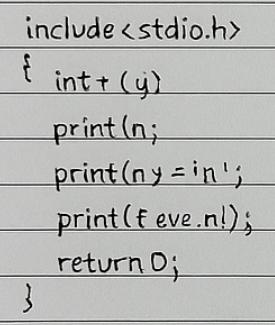 include<stdio.h>
{ int+ (y)
print(n;
print(ny=in';
print(f eve.n!);
return 0;
}